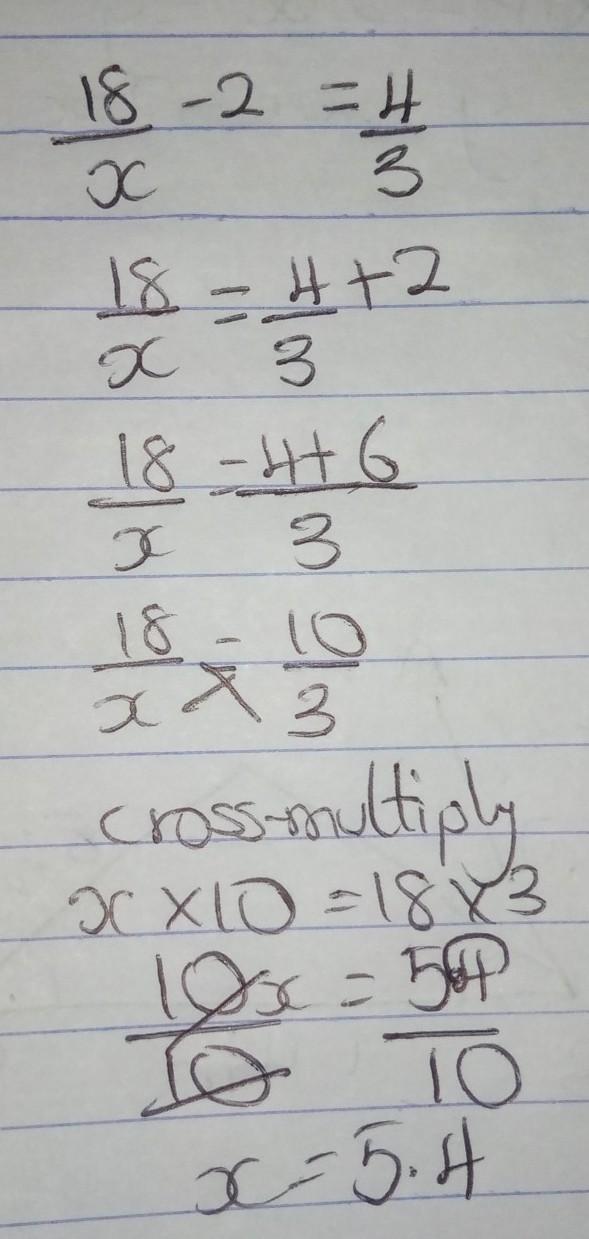 18/x - 2 = 4/3
18/x = 4/3 + 2
18/x = 4+6/3
18/x = 10/3
cross-multiply
x × 10 = 18 × 3
10x/10 = 54/10
x = 5.4